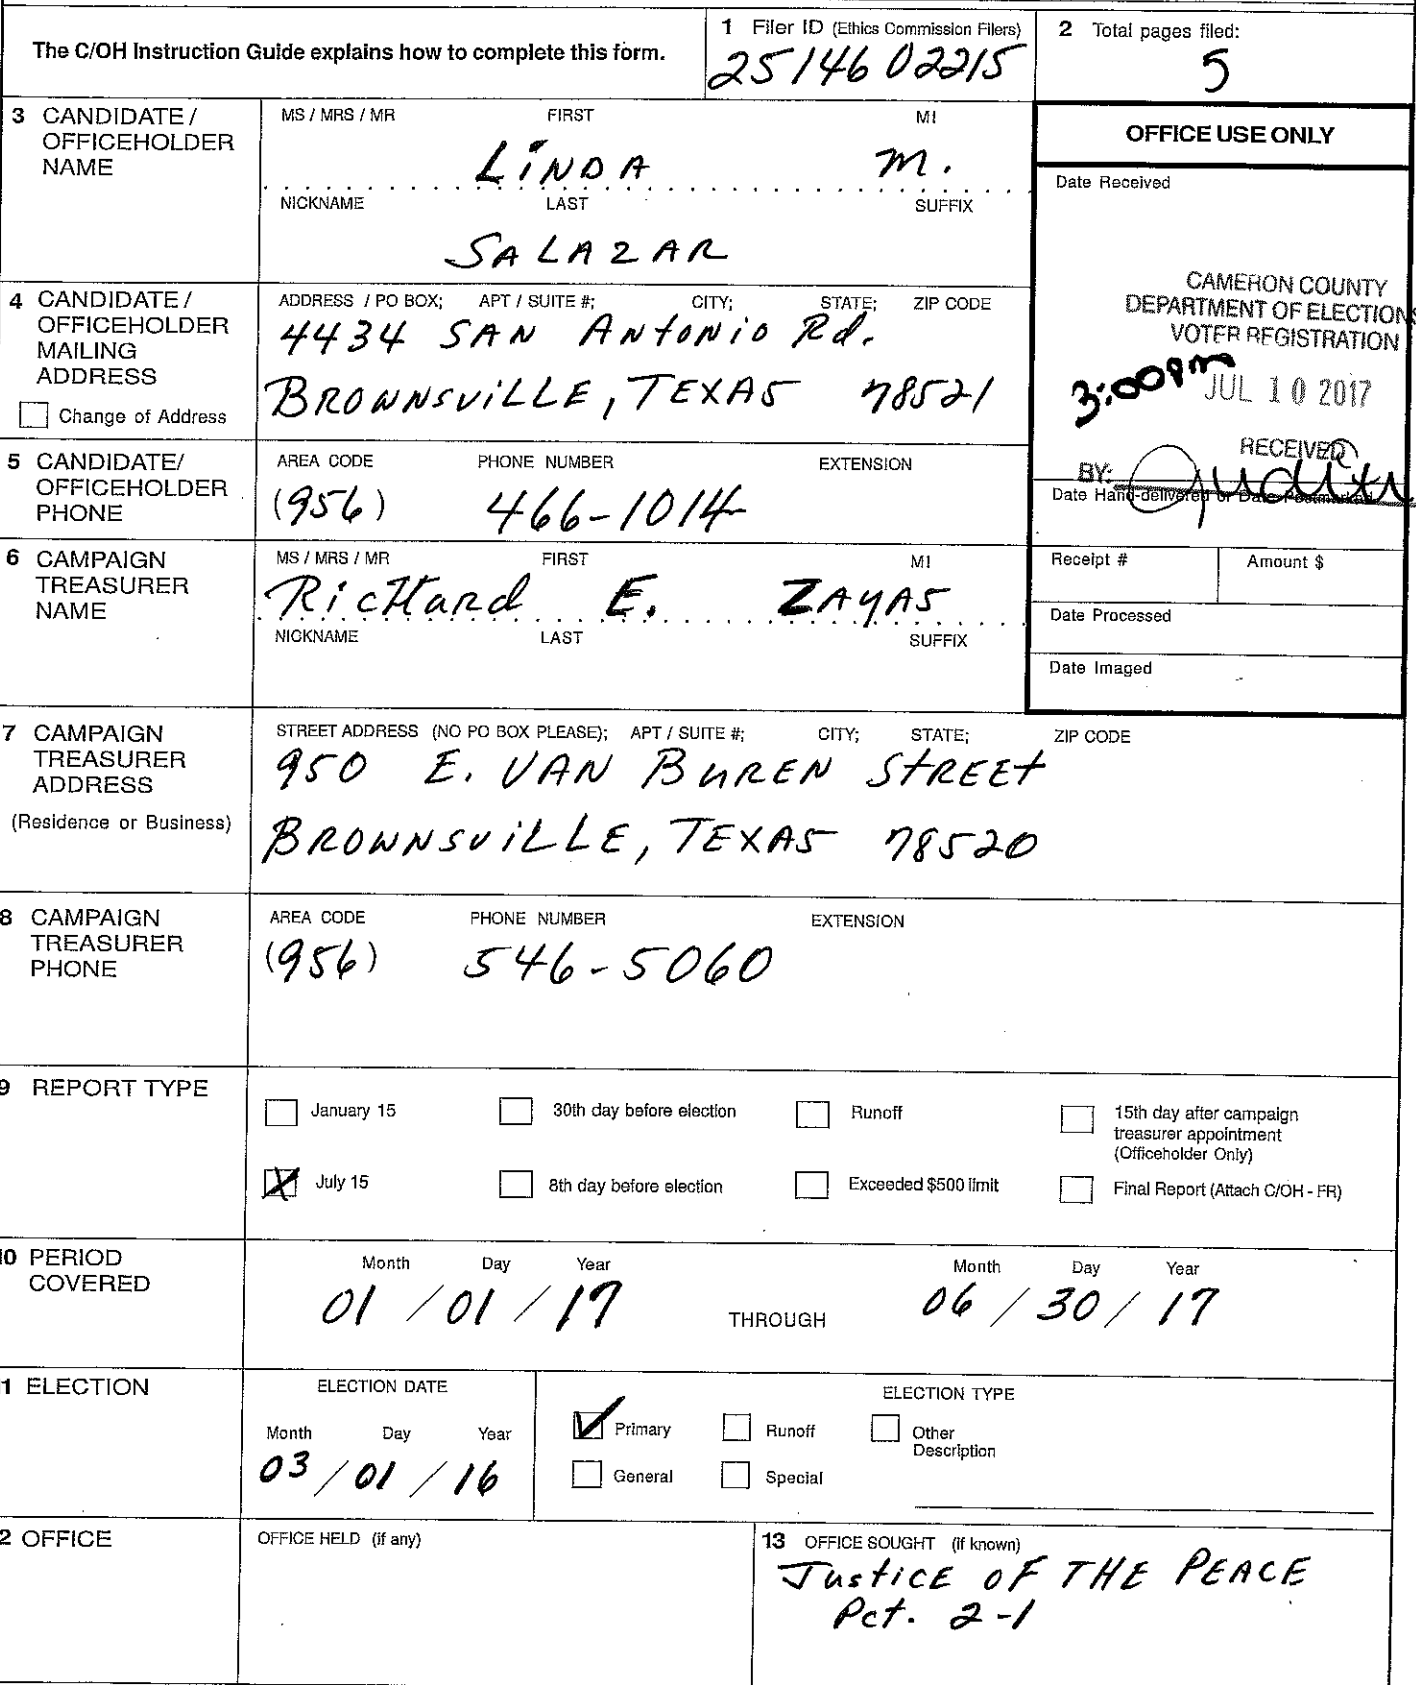 The C/OH Instruction Guide explains how to complete this form.
1 Filer ID (Ethics Commission Filers)
2514602215
2 Total pages filed:
5
3 CANDIDATE / OFFICEHOLDER NAME
MS / MRS / MR FIRST MI
LINDA M.
NICKNAME LAST SUFFIX
SALAZAR
OFFICE USE ONLY
Date Received
CAMERON COUNTY
DEPARTMENT OF ELECTIONS
VOTER REGISTRATION
3:00pm JUL 10 2017
RECEIVED
BY: Judith
Date Hand-delivered or Date Postmarked
Receipt # Amount $
Date Processed
Date Imaged
4 CANDIDATE / OFFICEHOLDER MAILING ADDRESS
Change of Address
ADDRESS / PO BOX; APT / SUITE #; CITY; STATE; ZIP CODE
4434 SAN ANtONiO Rd.
BROWNSViLLE, TEXAS 78521
5 CANDIDATE/ OFFICEHOLDER PHONE
AREA CODE PHONE NUMBER EXTENSION
(956) 466-1014
6 CAMPAIGN TREASURER NAME
MS / MRS / MR FIRST MI
RicHard E. ZAYAS
NICKNAME LAST SUFFIX
7 CAMPAIGN TREASURER ADDRESS
(Residence or Business)
STREET ADDRESS (NO PO BOX PLEASE); APT / SUITE #; CITY; STATE; ZIP CODE
950 E. VAN BUREN StREEt
BROWNSViLLE, TEXAS 78520
8 CAMPAIGN TREASURER PHONE
AREA CODE PHONE NUMBER EXTENSION
(956) 546-5060
9 REPORT TYPE
January 15 30th day before election Runoff 15th day after campaign treasurer appointment (Officeholder Only)
X July 15 8th day before election Exceeded $500 limit Final Report (Attach C/OH - FR)
10 PERIOD COVERED
Month Day Year Month Day Year
01 / 01 / 17 THROUGH 06 / 30 / 17
11 ELECTION
ELECTION DATE
Month Day Year
03 / 01 / 16
ELECTION TYPE
Primary Runoff Other Description
General Special
12 OFFICE
OFFICE HELD (if any)
13 OFFICE SOUGHT (if known)
JUStiCE OF THE PEACE
Pct. 2-1